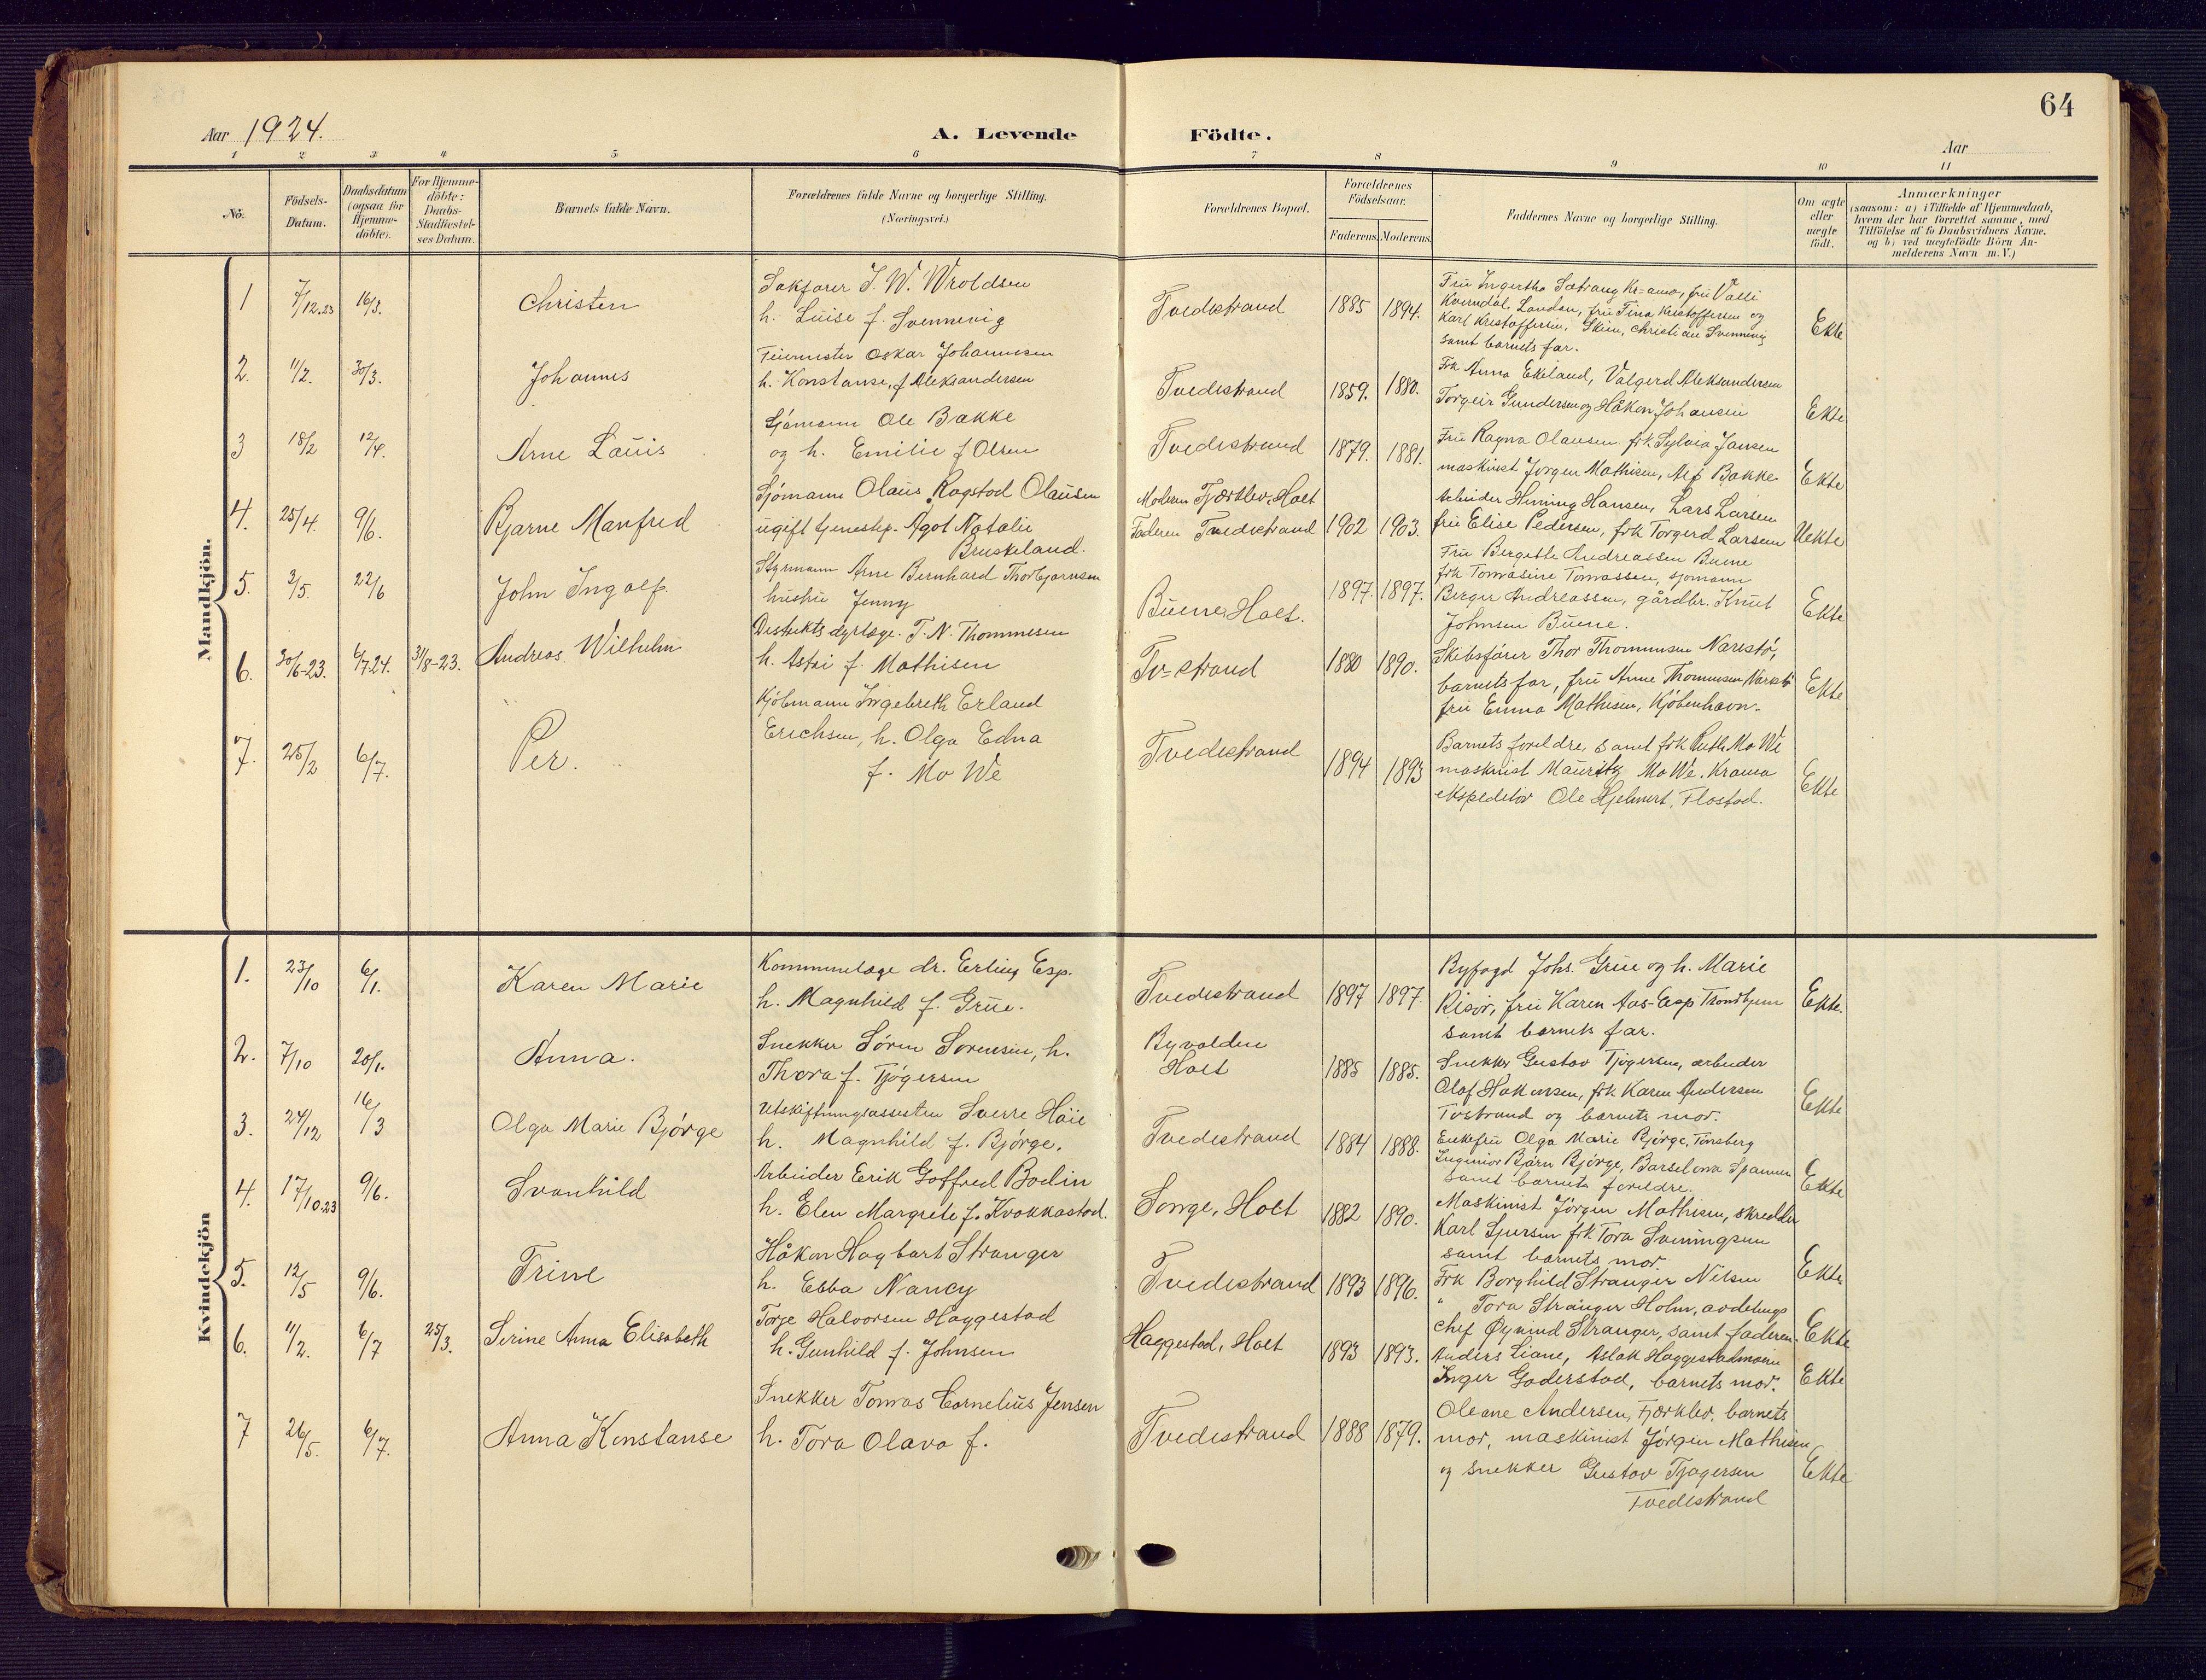 64
Aar 1924.
A. Levende Födte.
Aar
1 2 3 4 5 6 7 8 9 10 11
No.
Födsels-Datum.
Daabsdatum (ogsaa for Hjemme-döbte).
For Hjemme-döbte: Daabs-Stadfæstel-ses Datum.
Barnets fulde Navn.
Forældrenes fulde Navne og borgerlige Stilling. (Næringsvei.)
Forældrenes Bopæl.
Forældrenes Födselsaar.
Faderens. Moderens.
Faddernes Navne og borgerlige Stilling.
Om ægte eller uægte födt.
Anmærkninger
(saasom: a) i Tilfælde af Hjemmedaab,
hvem der har forrettet samme, med
Tilföielse af to Daabsvidners Navne,
og b) ved uægtefödte Börn An-
melderens Navn m. V.)
Mandkjön.
1 7/12.23 16/3. Christen
Sakfører J. W. Wroldsen
h. Luise f. Svennevig
Tvedestrand 1885 1894.
Fru Ingertha Sætrang Kr=ania, fru Valli
Kverndal, London, fru Tina Kristoffersen og
Karl Kristoffersen, Skien, Christian Svennevig
samt barnets far.
Ekte
2. 11/2. 30/3. Johannes
Feiermester Oskar Johannesen
h. Konstanse, f. Aleksandersen
Tvedestrand 1859. 1880.
Frk Anna Ekeland, Valgerd Aleksandersen
Torgeir Gundersen og Håkon Johansen
Ekte
3 18/2 12/4. Arne Louis
Sjømann Ole Bakke
og h. Emilie f Olsen
Tvedestrand 1879. 1881.
Fru Ragna Olausen frk Sylvia Jansen
maskinist Jørgen Mathisen, Alf Bakke
Ekte
4. 25/4. 9/6. Bjarne Manfred
Sjømann Olaus Rogstad Olausen
ugift tjenestep. Agot Natalie
Bruskeland.
Moderen Fjærkleiv, Holt
Faderen Tvedestrand 1902 1903.
Arbeider Henning Hansen, Lars Larsen
fru Elise Pedersen, frk Torgerd Larsen
Uekte
5. 3/5. 22/6 John Ingolf.
Styrmann Arne Bernhard Thorbjørnsen
hustru Jenny
Buene, Holt. 1897. 1897.
Fru Bergitte Andreassen Buene
frk Tomasine Tomassen, sjømann
Berger Andreassen, gårdbr. Knut
Johnsen Buene.
Ekte
6. 30/6-23. 6/7 24. 31/8-23. Andreas Wilhelm
Distriktsdyrlæge T. N. Thommesen
h. Astri f. Mathisen
Tv=strand 1880 1890.
Skibsfører Thor Thommesen Narestø,
barnets far, fru Anne Thommesen, Narestø
fru Emma Mathisen, Kjøbenhavn.
Ekte
7. 25/2 6/7. Per.
Kjøbmann Ingebreth Erland
Erichsen, h. Olga Edna
f. Mo We
Tvedestrand 1894 1893
Barnets foreldre, samt frk Ruth Mo We
maskinist Mauritz Mo We. Krania
ekspeditør Ole Hjelmert, Flostad.
Ekte
Kvindekjön
1. 23/10 6/1. Karen Marie
Kommunelæge dr. Erling Esp.
h. Magnhild f. Grue.
Tvedestrand 1897 1897.
Byfogd Johs. Grue og h. Marie
Risør, fru Karen Aas-Esp Trondhjem
samt barnets far.
Ekte.
2. 7/10 20/1. Anna.
Snekker Søren Sørensen, h.
Thora f. Tjøgersen
Holt 1885 1885.
Snekker Gustav Tjøgersen, arbeider
Olaf Håkonsen, frk Karen Andersen
Tvstrand og barnets mor.
Ekte
3. 24/12 16/3 Olga Marie Bjørge
Utskiftningsassistent Sverre Høie
h. Magnhild f. Bjørge.
Tvedestrand 1884 1888.
Enkefru Olga Marie Bjørge, Tønsberg
Ingeniør Bjørn Bjørge, Barselona Spanien
samt barnets foreldre.
Ekte
4. 17/10.23 9/6. Svanhild
Arbeider Erik Goffred Bodin
h. Elen Margrete f. Kvakkastad.
Songe, Holt 1882 1890.
Maskinist Jørgen Mathisen, skredder
Karl Sjursen frk Tora Sveningsen
samt barnets mor.
Ekte
5. 12/5 9/6. Trine
Håkon Hagbart Stranger
h. Ebba Nancy
Tvedestrand 1893 1896.
Frk Borghild Stranger Nilsen
" Tora Stranger Holm, avdelings
chef Øyvind Stranger, samt faderen.
Ekte
6. 11/2. 6/7 25/3. Serine Anna Elisabeth
Torje Halvorsen Haggestad
h. Gunhild f. Johnsen
Haggestad, Holt 1893 1893.
Anders Liane, Aslak Haggestadmoen
Inger Goderstad, barnets mor.
Ekte
7 26/5. 6/7. Anna Konstanse
Snekker Tomas Cornelius Jensen
h. Tora Olava f.
Tvedestrand 1888 1879.
Oleane Andersen, Fjærkleiv, barnets
mor, maskinist Jørgen Mathisen
og snekker Gustav Tjøgersen
Tvedestrand
Ekte